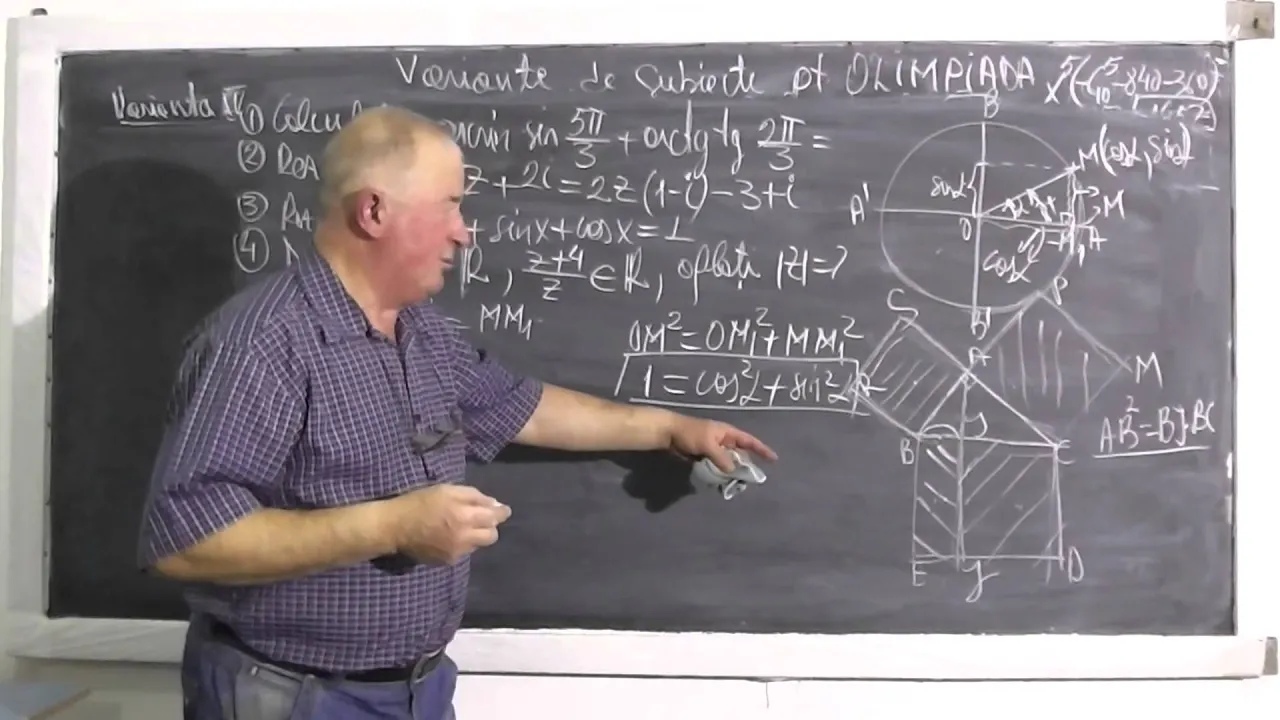 Variante de subiecte pt OLIMPIADA
Varianta II
① Calcul arcsin sin 5π/3 + arctg tg 2π/3 =
② z + 2i = 2z(1-i) - 3 + i
③ + sinx + cosx = 1
④ ℝ, (z+4)/z ∈ ℝ, aflați |z| = ?
= MM₁
OM² = OM₁² + MM₁²
1 = cos²α + sin²α
B
M(cosα, sinα)
sinα
A'
O
M
M₁
A
cosα
B'
P
S
A
M
B
J
C
AB² = BJ·BC
E
J
D